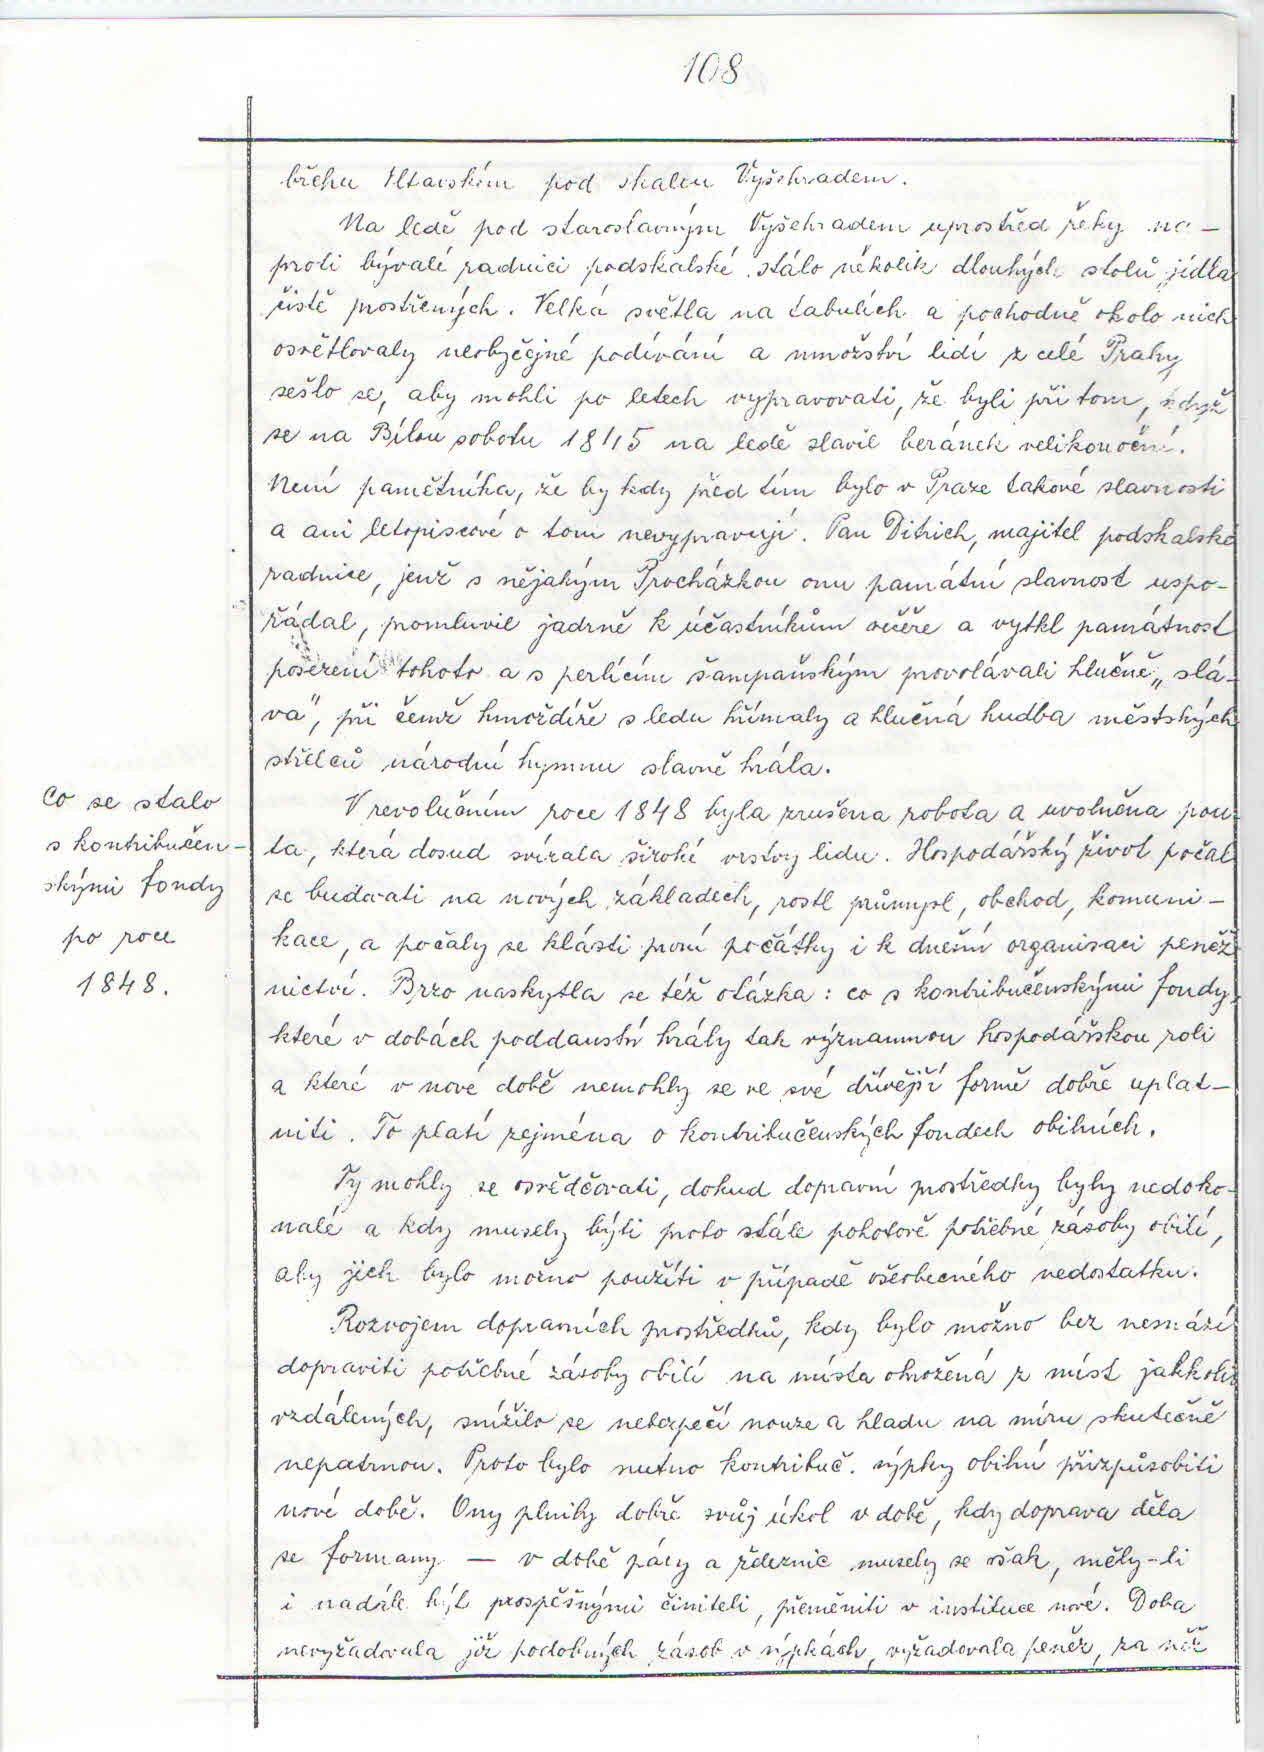 108
břehu Vltavském pod skalou Vyšehradem.
Na ledě pod staroslavným Vyšehradem uprostřed řeky na-
proti bývalé radnici podskalské stálo několik dlouhých stolů jídla
čistě prostřených. Velká světla na tabulích a pochodně okolo nich
osvětlovaly neobyčejné podívání a množství lidí z celé Prahy
sešlo se, aby mohli po letech vypravovati, že byli při tom, když
se na Bílou sobotu 1845 na ledě slavil beránek velikonoční.
Není pamětníka, že by kdy před tím bylo v Praze takové slavnosti
a ani letopiscové o tom nevypravují. Pan Ditrich, majitel podskalské
radnice, jenž s nějakým Procházkou onu památní slavnost uspo-
řádal, promluvil jadrně k účastníkům večeře a vytkl památnost
posezení tohoto a s perlícím šampaňským provolávali hlučně „slá-
va", při čemž hmoždíře s ledu hřímaly a hlučná hudba městských
střelců národní hymnu slavně hrála.
Co se stalo
s kontribučen-
skými fondy
po roce
1848.
V revolučním roce 1848 byla zrušena robota a uvolněna pou-
ta, která dosud svírala široké vrstvy lidu. Hospodářský život počal
se budovati na nových základech, rostl průmysl, obchod, komuni-
kace, a počaly se klásti první počátky i k dnešní organisaci peněž
nictví. Brzo naskytla se též otázka: co s kontribučenskými fondy,
které v dobách poddanství hrály tak významnou hospodářskou roli
a které v nové době nemohly se ve své dřívější formě dobře uplat-
niti. To platí zejména o kontribučenských fondech obilních.
Ty mohly se osvědčovati, dokud dopravní prostředky byly nedoko-
nalé a kdy musely býti proto stále pohotově potřebné zásoby obilí,
aby jich bylo možno použíti v případě všeobecného nedostatku.
Rozvojem dopravních prostředků, kdy bylo možno bez nesnází
dopraviti potřebné zásoby obilí na místa ohrožená z míst jakkoliv
vzdálených, snížilo se nebezpečí nouze a hladu na míru skutečně
nepatrnou. Proto bylo nutno kontribuč. sýpky obilní přizpůsobiti
nové době. Ony plnily dobře svůj úkol v době, kdy doprava děla
se formany — v době páry a železnic musely se však, měly-li
i nadále být prospěšnými činiteli, přeměniti v instituce nové. Doba
nevyžadovala již podobných zásob v sýpkách, vyžadovala peněz, za něž